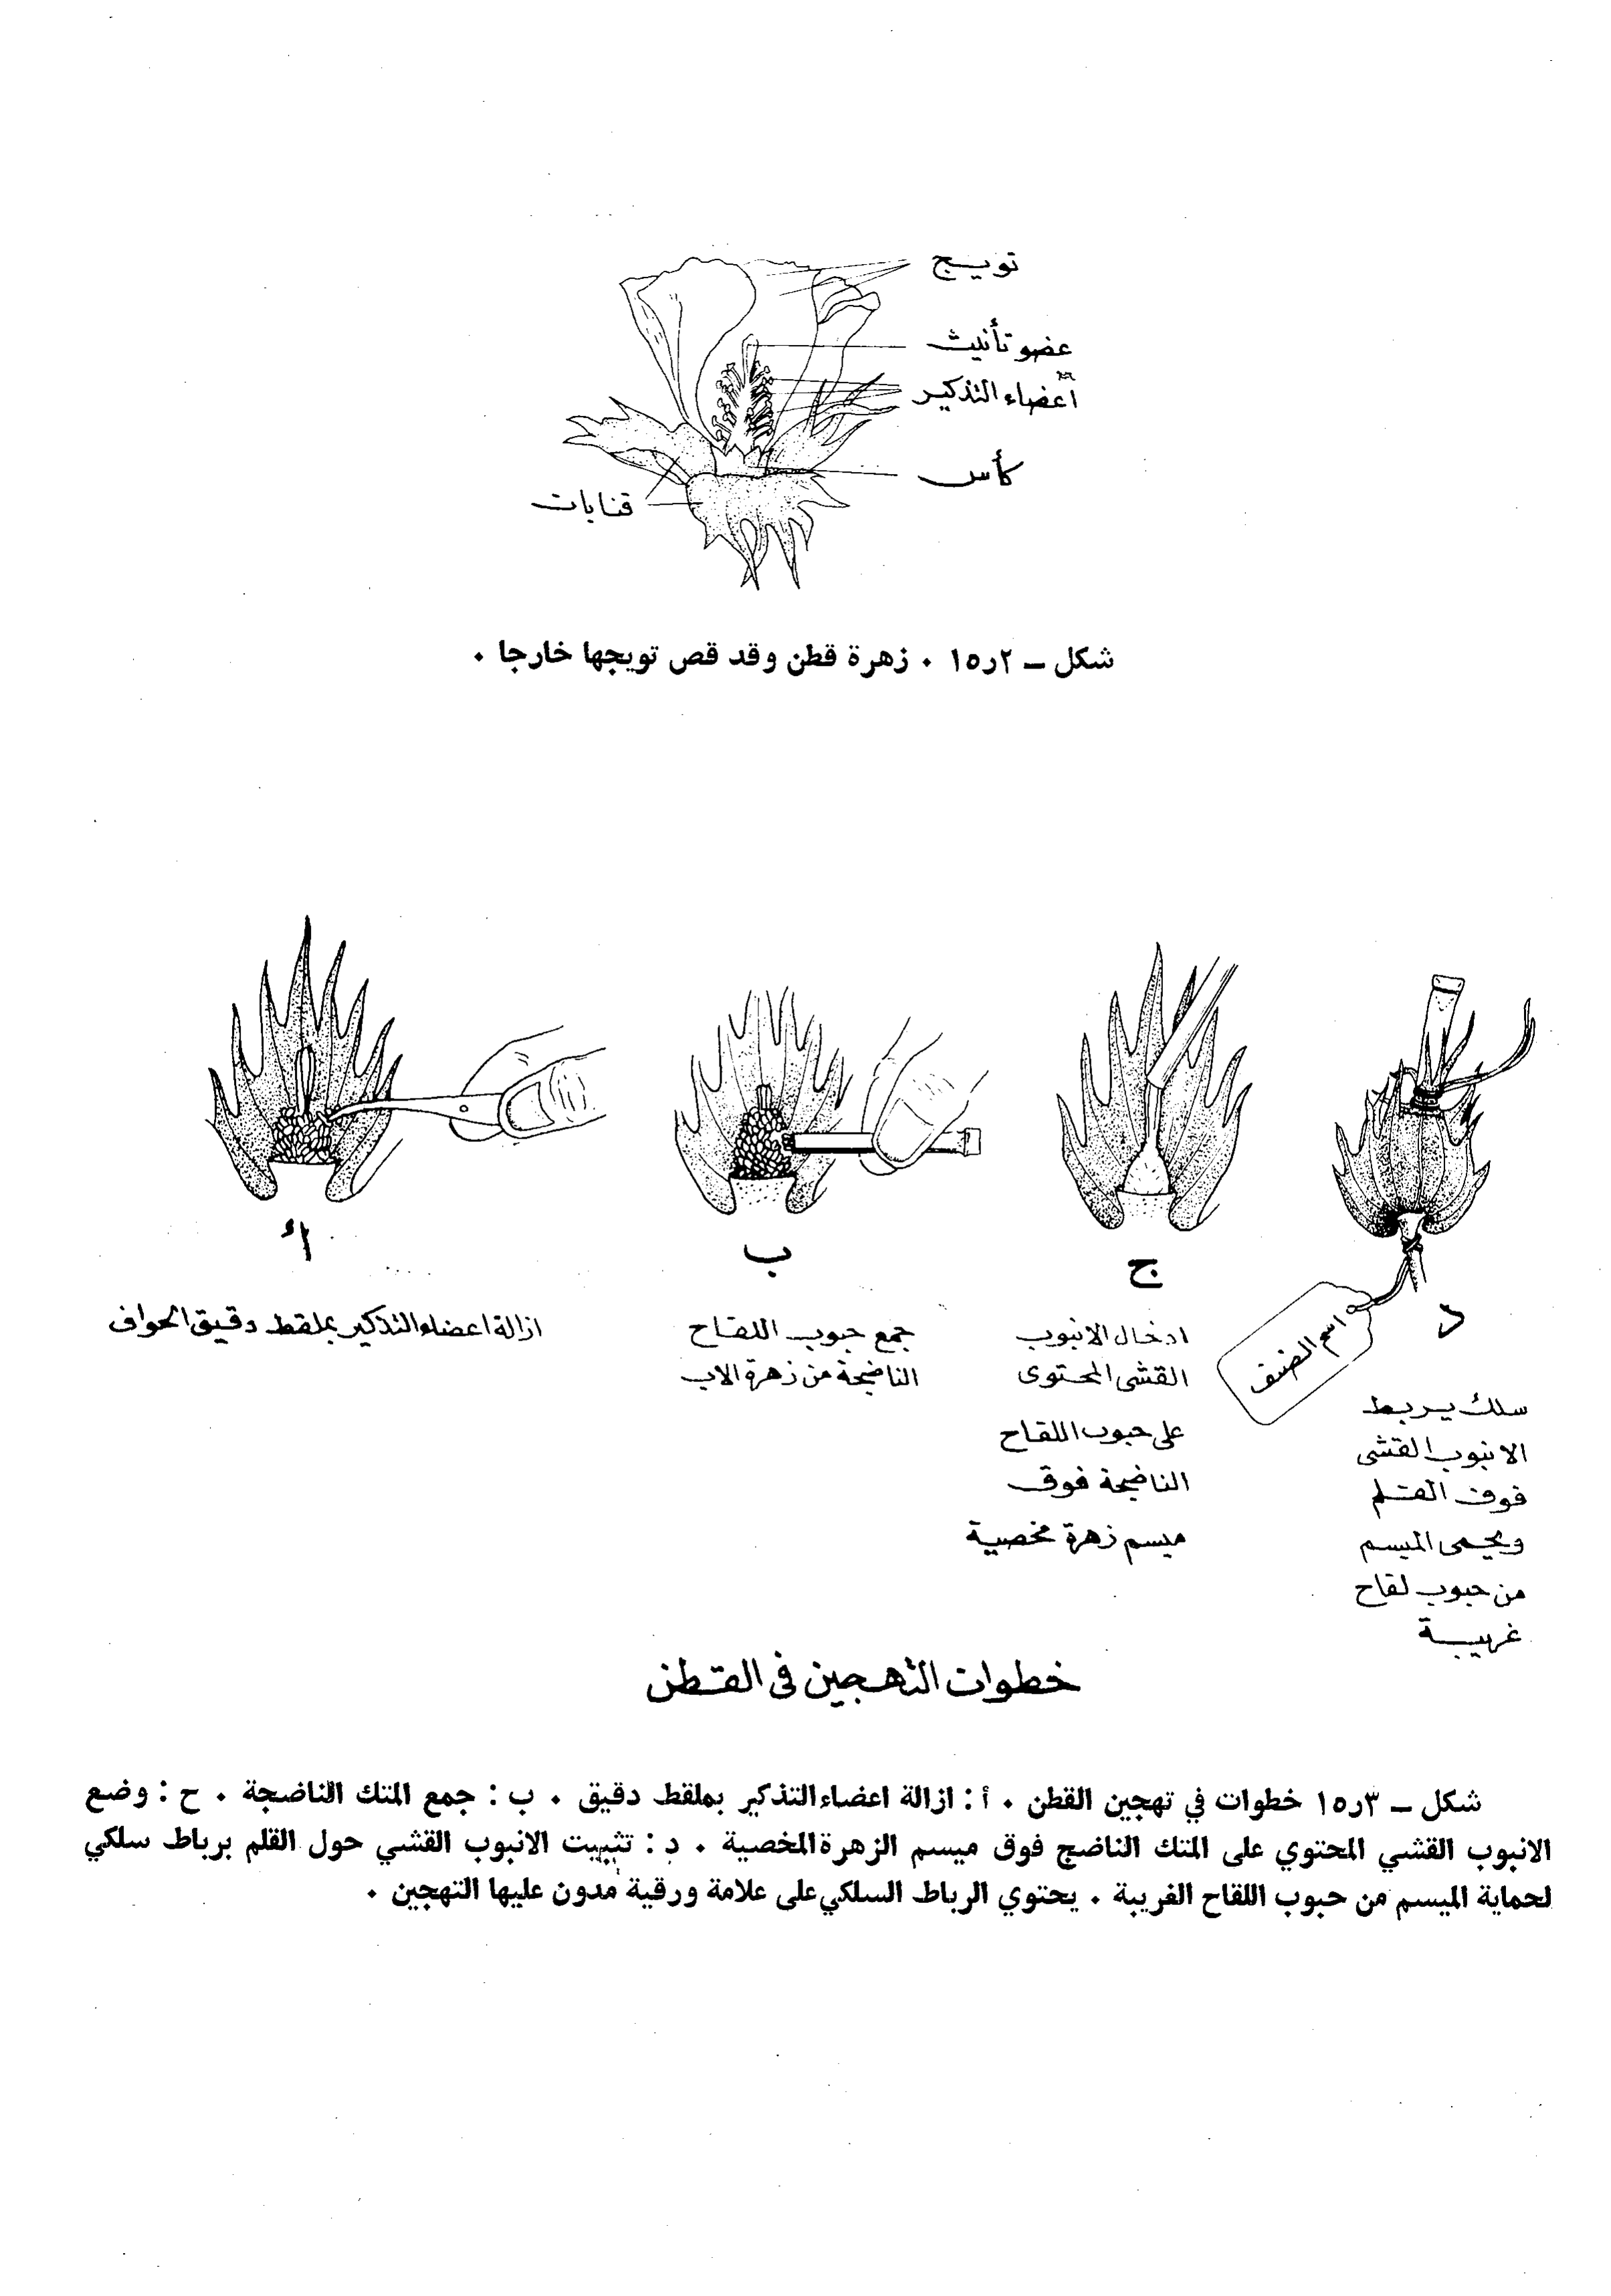 تويج
عضو تأنيث
أعضاء التذكير
كأس
قنابات
شكل – ٢ر١٥ . زهرة قطن وقد قص تويجها خارجا .
أ
ازالة اعضاء التذكير بملقط دقيق الحواف
ب
جمع حبوب اللقاح
الناضجة من زهرة الاب
ج
ادخال الانبوب
القشى المحتوى
على حبوب اللقاح
الناضجة فوق
ميسم زهرة مخصية
د
اسم الصنف
سلك يربط
الانبوب القشى
فوق القلم
ويحمى الميسم
من حبوب لقاح
غريبة
خطوات التهجين فى القطن
شكل – ٣ر١٥ خطوات في تهجين القطن . أ : ازالة اعضاء التذكير بملقط دقيق . ب : جمع المتك الناضجة . ح : وضع
الانبوب القشي المحتوي على المتك الناضج فوق ميسم الزهرة المخصية . د : تثبيت الانبوب القشي حول القلم برباط سلكي
لحماية الميسم من حبوب اللقاح الغريبة . يحتوي الرباط السلكي على علامة ورقية مدون عليها التهجين .